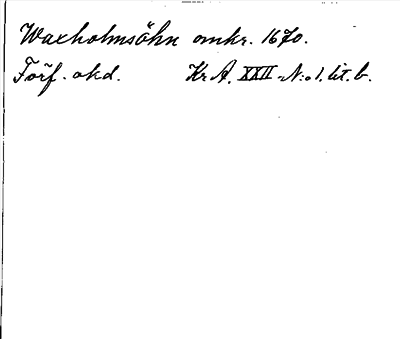 Waxholmsöhn omkr. 1670.
Förf. okd. Kr A. XXII N:o 1. lit. b.